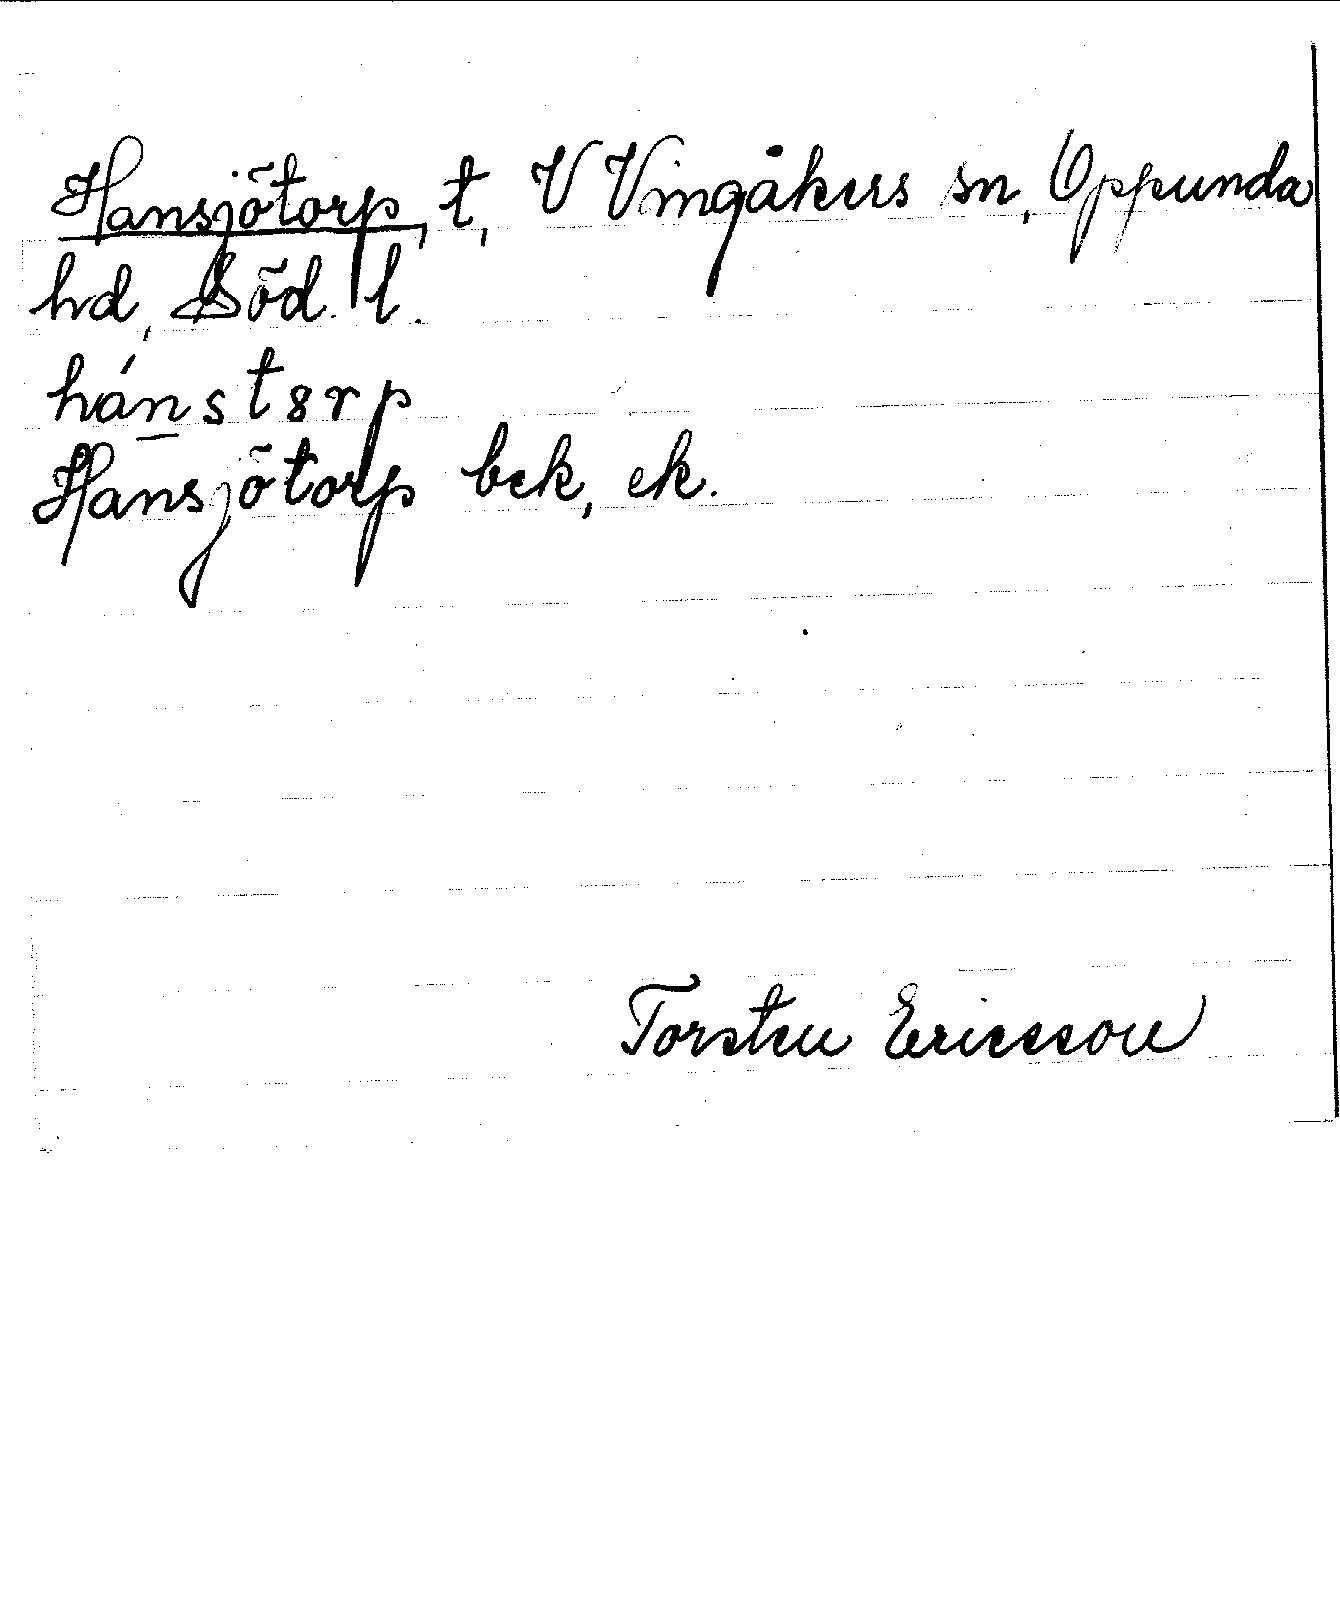 Hansjötorp, t, V Vingåkers sn, Oppunda
hd, Söd. l.
hán̲st8rp
Hansjötorp bek, ek.
Torsten Ericsson